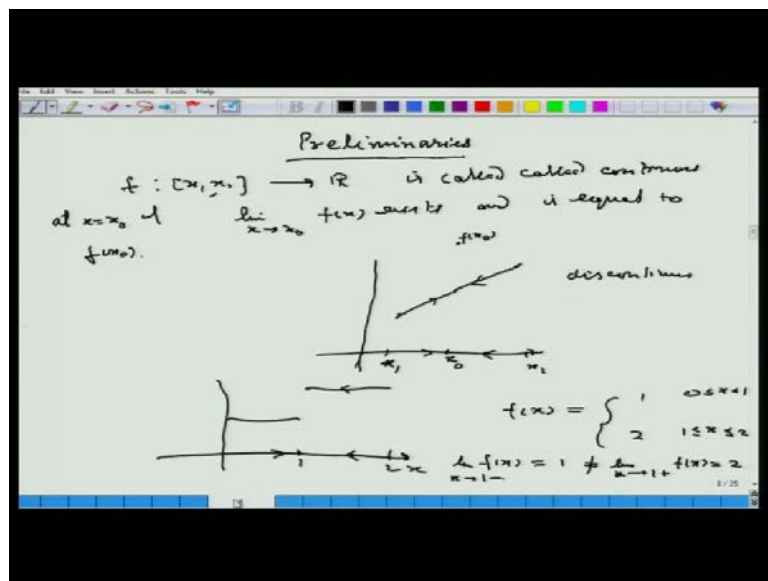 Edit View Insert Actions Tools Help
Preliminaries
f : [x₁, x₂] → ℝ is called called continuous
at x=x₀ if lim x→x₀ f(x) exists and is equal to
f(x₀).
.f(x₀)
discontinuous
x₁ x₀ x₂
f(x) = { 1 0≤x<1
2 1≤x≤2
1 2 x
lim x→1- f(x) = 1 ≠ lim x→1+ f(x) = 2
8/25